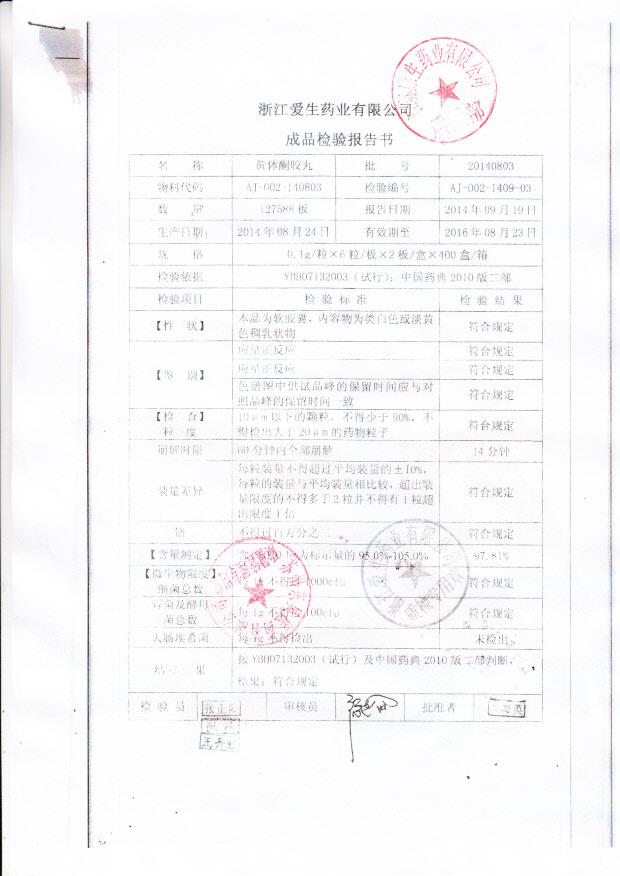 生药业有限公司
浙江爱生药业有限公司
成品检验报告书
名 称 黄体酮胶丸 批 号 20140803
物料代码 AJ-002-140803 检验编号 AJ-002-1409-03
数 量 127588 板 报告日期 2014 年 09 月 19 日
生产日期: 2014 年 08 月 24 日 有效期至 2016 年 08 月 23 日
规 格 0.1g/粒×6 粒/板×2 板/盒×400 盒/箱
检验依据 YBH07132003（试行）；中国药典 2010 版二部
检验项目 检 验 标 准 检 验 结 果
【性 状】 本品为软胶囊，内容物为类白色或淡黄
色稠乳状物 符合规定
【鉴 别】 应呈正反应 符合规定
应呈正反应 符合规定
色谱图中供试品峰的保留时间应与对
照品峰的保留时间一致 符合规定
【检 查】
粒 度 10μm 以下的颗粒，不得少于 90%，不
得检出大于 20μm 的药物粒子 符合规定
崩解时限 60 分钟内全部崩解 14 分钟
装量差异 每粒装量不得超过平均装量的±10%，
每粒的装量与平均装量相比较，超出装
量限度的不得多于 2 粒并不得有 1 粒超
出限度 1 倍 符合规定
铬 不得过百万分之二 符合规定
【含量测定】 为标示量的 95.0%-105.0% 97.81%
【微生物限度】
细菌总数 不得 000cfu 符合规定
霉菌及酵母
菌总数 每 1g 不得 100cfu 符合规定
大肠埃希菌 每 1g 不得检出 未检出
结 果 按 YBH07132003（试行）及中国药典 2010 版二部判断，
结果：符合规定
检 验 员 审核员 批准者
质检专用章